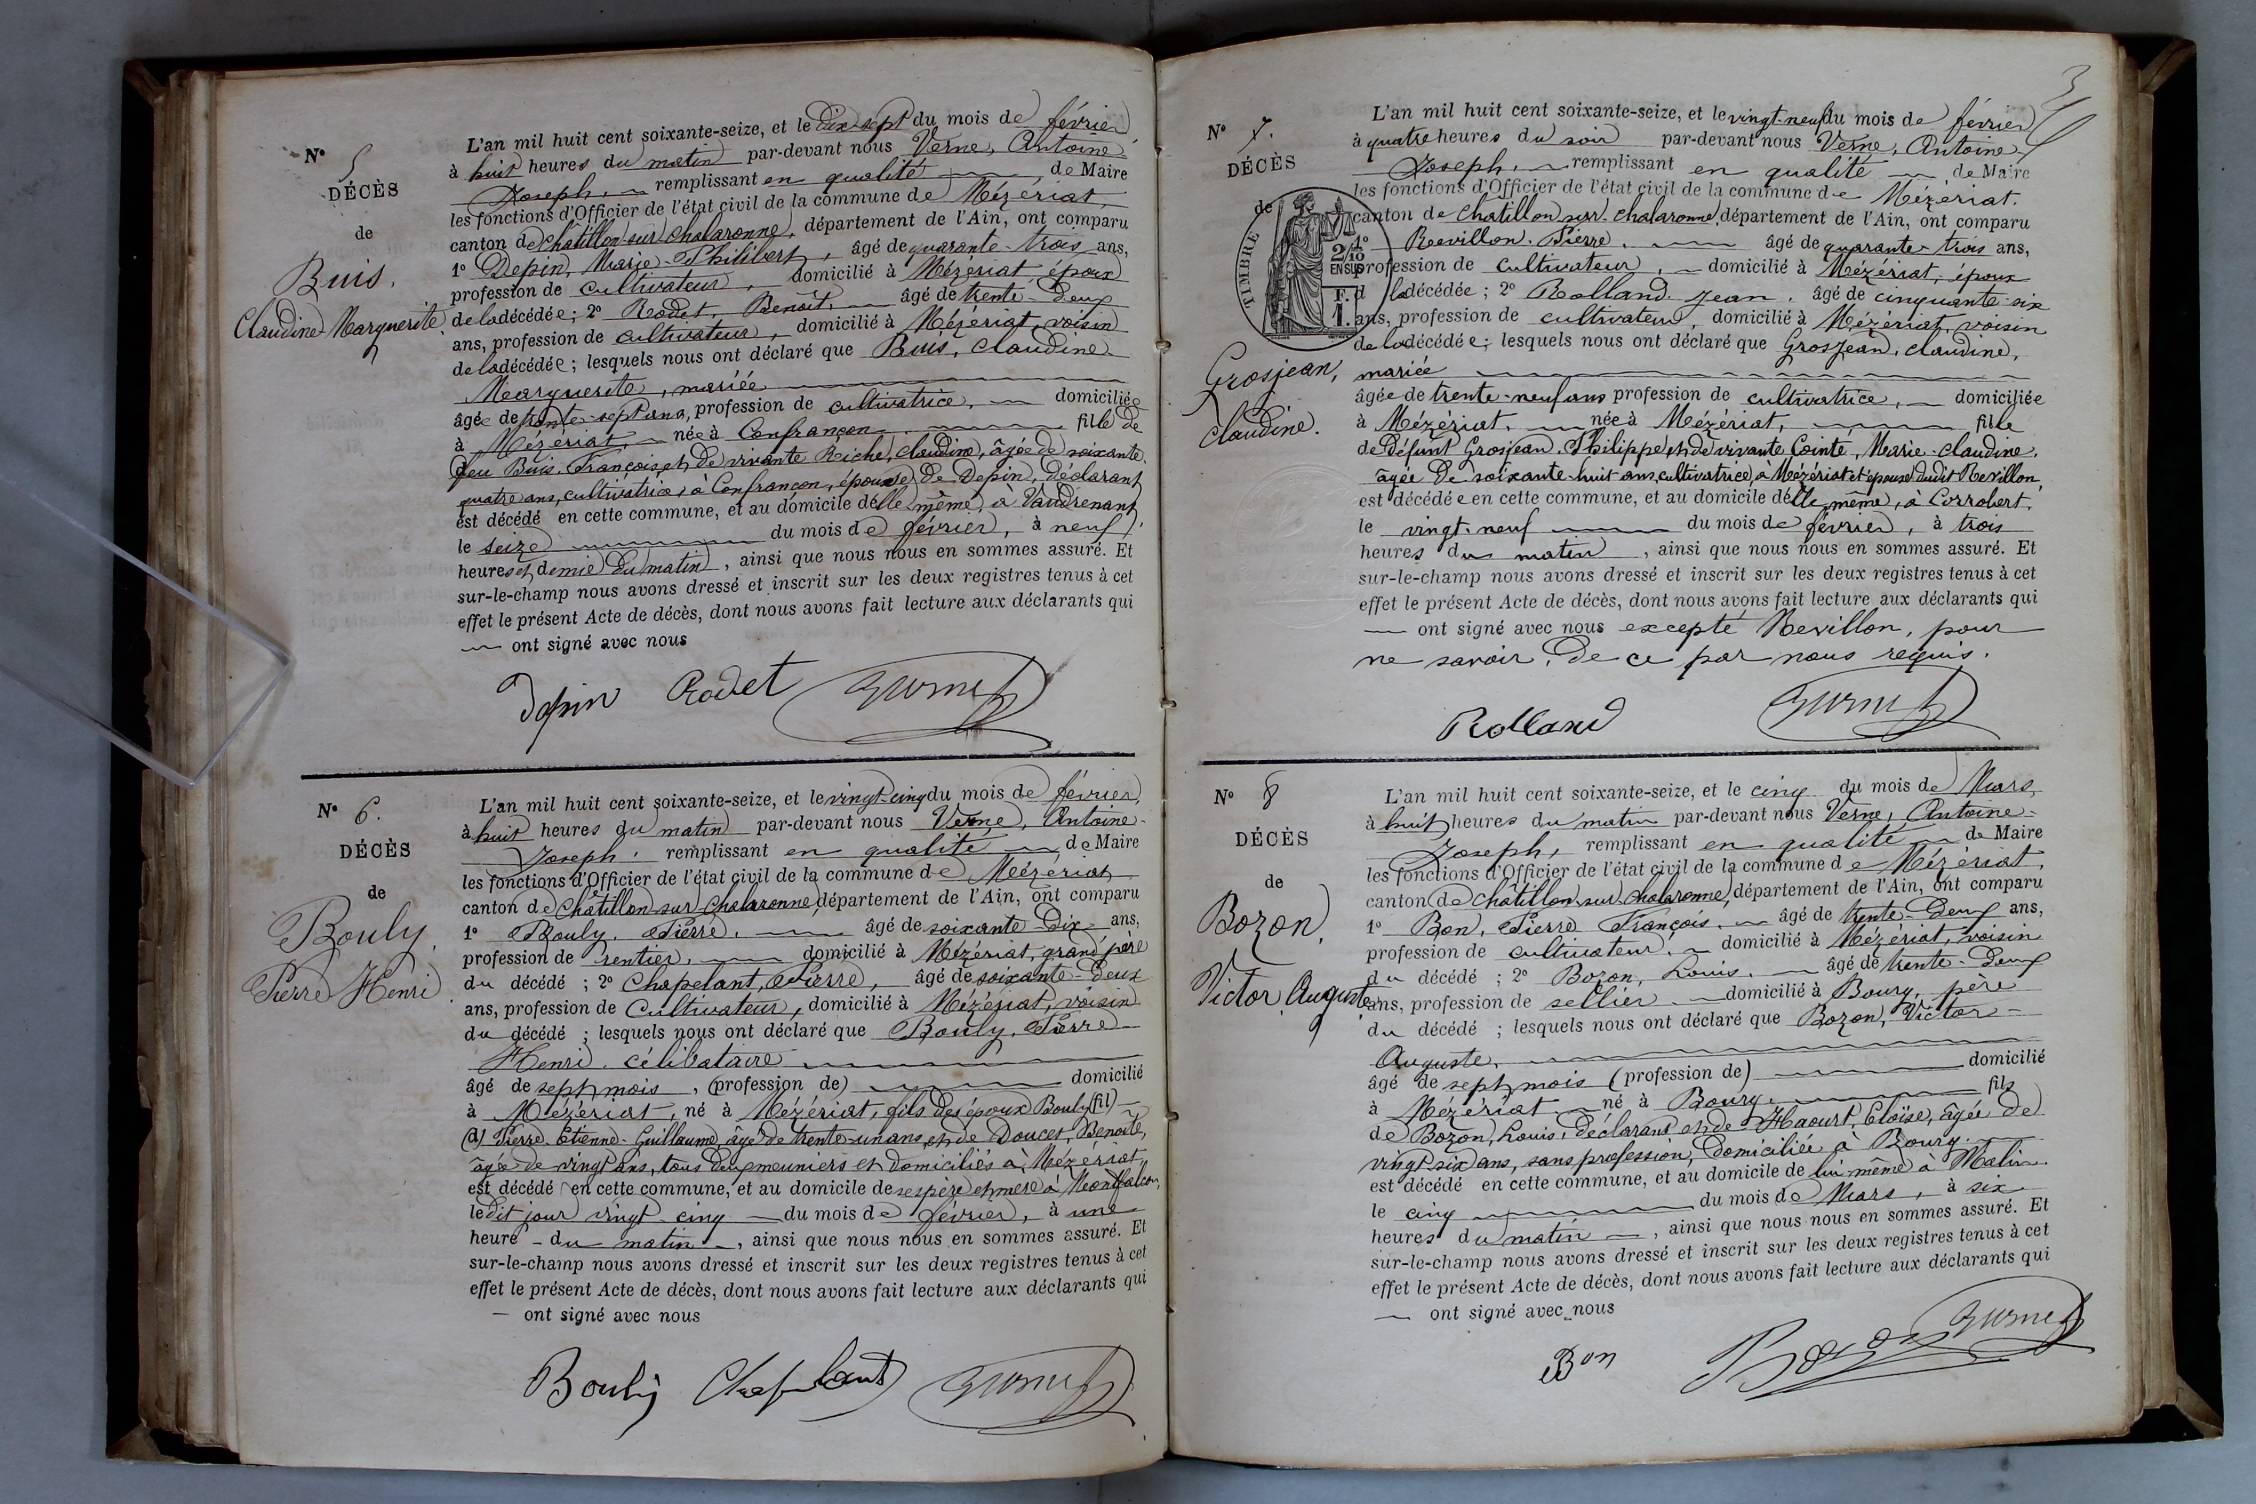 N° 5
DÉCÈS
de
Buis,
Claudine Marguerite
L'an mil huit cent soixante-seize, et le dix-sept du mois de février,
à huit heures du matin par-devant nous Verne, Antoine
Joseph, remplissant en qualité de Maire
les fonctions d'Officier de l'état civil de la commune de Mézériat,
canton de Châtillon sur Chalaronne, département de l'Ain, ont comparu
1° Depin, Marie-Philibert, âgé de quarante-trois ans,
profession de cultivateur, domicilié à Mézériat, époux
de la décédée; 2° Rodet, Benoit, âgé de trente-deux
ans, profession de cultivateur, domicilié à Mézériat, voisin
de la décédée; lesquels nous ont déclaré que Buis, Claudine
Marguerite, mariée
âgée de trente-sept ans, profession de cultivatrice, domiciliée
à Mézériat née à Confrançon fille de
feu Buis, François et de vivante Riche, Claudine, âgée de soixante
quatre ans, cultivatrice, à Confrançon, épouse de Depin, déclarant
est décédé en cette commune, et au domicile d'elle même, à Vandrenant,
le seize du mois de février, à neuf
heures et demie du matin, ainsi que nous nous en sommes assuré. Et
sur-le-champ nous avons dressé et inscrit sur les deux registres tenus à cet
effet le présent Acte de décès, dont nous avons fait lecture aux déclarants qui
ont signé avec nous
Depin Rodet
N° 6.
DÉCÈS
de
Bouly,
Pierre Henri
L'an mil huit cent soixante-seize, et le vingt-cinq du mois de février,
à huit heures du matin par-devant nous Verne, Antoine
Joseph, remplissant en qualité de Maire
les fonctions d'Officier de l'état civil de la commune de Mézériat
canton de Châtillon sur Chalaronne, département de l'Ain, ont comparu
1° Bouly, Pierre, âgé de soixante-dix ans,
profession de rentier, domicilié à Mézériat, grand père
du décédé; 2° Chapelant, Pierre, âgé de soixante-deux
ans, profession de Cultivateur, domicilié à Mézériat, voisin
du décédé; lesquels nous ont déclaré que Bouly, Pierre
Henri, célibataire
âgé de sept mois, (profession de) domicilié
à Mézériat, né à Mézériat, fils des époux Bouly (fil)
(d) Pierre-Etienne-Guillaume, âgé de trente-un ans, et de Doucet, Benoite,
âgée de vingt ans, tous deux meuniers et domiciliés à Mézériat,
est décédé en cette commune, et au domicile de ses père et mère à Montfalcon,
le dit jour vingt-cinq du mois de février, à une
heure du matin, ainsi que nous nous en sommes assuré. Et
sur-le-champ nous avons dressé et inscrit sur les deux registres tenus à cet
effet le présent Acte de décès, dont nous avons fait lecture aux déclarants qui
ont signé avec nous
Bouly Chapelant
3
N° 7.
DÉCÈS
de
TIMBRE
2/10
EN SUS
F.
1.
Grosjean,
Claudine.
L'an mil huit cent soixante-seize, et le vingt-neuf du mois de février
à quatre heures du soir par-devant nous Verne, Antoine
Joseph, remplissant en qualité de Maire
les fonctions d'Officier de l'état civil de la commune de Mézériat.
canton de Châtillon sur Chalaronne, département de l'Ain, ont comparu
1° Revillon, Pierre, âgé de quarante-trois ans,
profession de cultivateur, domicilié à Mézériat, époux
d la décédée; 2° Rolland, Jean, âgé de cinquante-six
ans, profession de cultivateur, domicilié à Mézériat, voisin
de la décédée; lesquels nous ont déclaré que Grosjean, Claudine,
mariée
âgée de trente-neuf ans profession de cultivatrice, domiciliée
à Mézériat, née à Mézériat, fille
de défunt Grosjean, Philippe et de vivante Cointe, Marie-Claudine,
âgée de soixante-huit ans, cultivatrice, à Mézériat et épouse dudit Revillon,
est décédée en cette commune, et au domicile d'elle même, à Corrobert,
le vingt-neuf du mois de février, à trois
heures du matin, ainsi que nous nous en sommes assuré. Et
sur-le-champ nous avons dressé et inscrit sur les deux registres tenus à cet
effet le présent Acte de décès, dont nous avons fait lecture aux déclarants qui
ont signé avec nous excepté Revillon, pour
ne savoir, de ce par nous requis.
Rolland
N° 8
DÉCÈS
de
Bozon,
Victor Auguste
L'an mil huit cent soixante-seize, et le cinq du mois de Mars,
à huit heures du matin par-devant nous Verne, Antoine
Joseph, remplissant en qualité de Maire
les fonctions d'Officier de l'état civil de la commune de Mézériat,
canton de Châtillon sur Chalaronne, département de l'Ain, ont comparu
1° Bon, Pierre François, âgé de trente-deux ans,
profession de cultivateur, domicilié à Mézériat, voisin
du décédé; 2° Bozon, Louis, âgé de trente-deux
ans, profession de sellier, domicilié à Bourg, père
du décédé; lesquels nous ont déclaré que Bozon, Victor
Auguste,
âgé de sept mois (profession de) domicilié
à Mézériat né à Bourg, fils
de Bozon, Louis, déclarant et de Haourt, Eloïse, âgée de
vingt-six ans, sans profession, domiciliée à Bourg.
est décédé en cette commune, et au domicile de lui même à Malin
le cinq du mois de Mars, à six
heures du matin, ainsi que nous nous en sommes assuré. Et
sur-le-champ nous avons dressé et inscrit sur les deux registres tenus à cet
effet le présent Acte de décès, dont nous avons fait lecture aux déclarants qui
ont signé avec nous
Bon Bozon